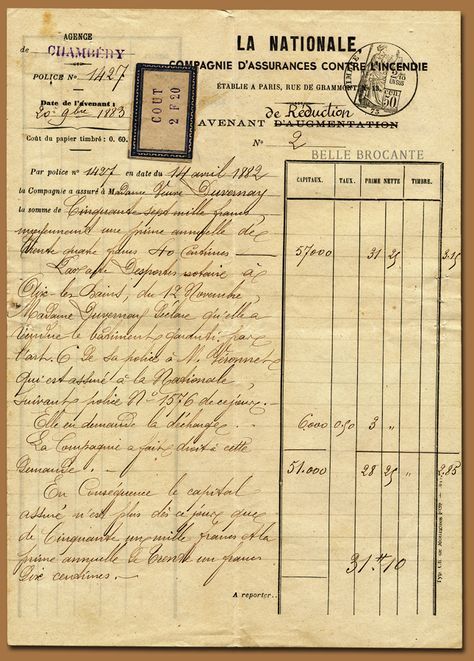 AGENCE
de CHAMBÉRY
POLICE No 1427
Date de l'Avenant :
20 9bre 1883
Coût du papier timbré : 0. 60.
COÛT
2 F 20
LA NATIONALE,
COMPAGNIE D'ASSURANCES CONTRE L'INCENDIE
ÉTABLIE A PARIS, RUE DE GRAMMONT, N. 13.
50
de Réduction
AVENANT D'AUGMENTATION
No 2
BELLE BROCANTE
CAPITAUX. TAUX. PRIME NETTE TIMBRE.
Par police no 1427 en date du 14 avril 1882
la Compagnie a assuré à Madame Veuve Duvernay
la somme de Cinquante sept mille francs
moyennant une prime annuelle de
trente quatre francs 40 centimes —
57000 31 25 3.15
Par acte Desportes notaire à
Aix-les-Bains, du 12 Novembre,
Madame Duvernay déclare qu'elle a
vendu le bâtiment garanti par
l'art. 6 de sa police à M. Véronnet
qui est assuré à la Nationale
suivant police No 1576 de ce jour. —
Elle en demande la décharge. —
6000 0,50 3 "
La Compagnie a fait droit à cette
demande. —
51.000 28 25 " 2.85
En Conséquence le capital
assuré n'est plus dès ce jour que
de Cinquante un mille francs et la
prime annuelle de trente un francs
dix centimes. —
31 " 10
A reporter..